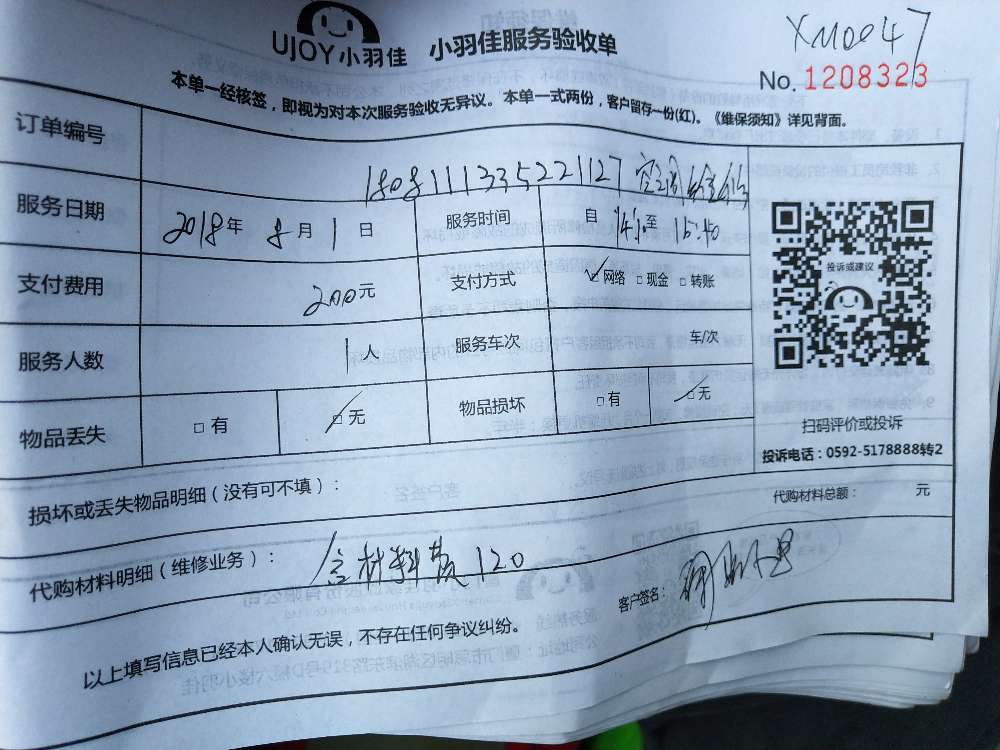 UJOY小羽佳 小羽佳服务验收单
XM0047
No. 1208323
本单一经核签，即视为对本次服务验收无异议。本单一式两份，客户留存一份(红)。《维保须知》详见背面。
订单编号 1808111335221127 空调维修
服务日期 2018年 8月 1日 服务时间 自 至 15:40
支付费用 200元 支付方式 ☑网络 □现金 □转账
服务人数 1人 服务车次 车/次
物品丢失 □有 ☑无 物品损坏 □有 ☑无
投诉或建议
扫码评价或投诉
投诉电话：0592-5178888转2
损坏或丢失物品明细（没有可不填）：
代购材料总额： 元
代购材料明细（维修业务）： 含材料费120
客户签名：
以上填写信息已经本人确认无误，不存在任何争议纠纷。